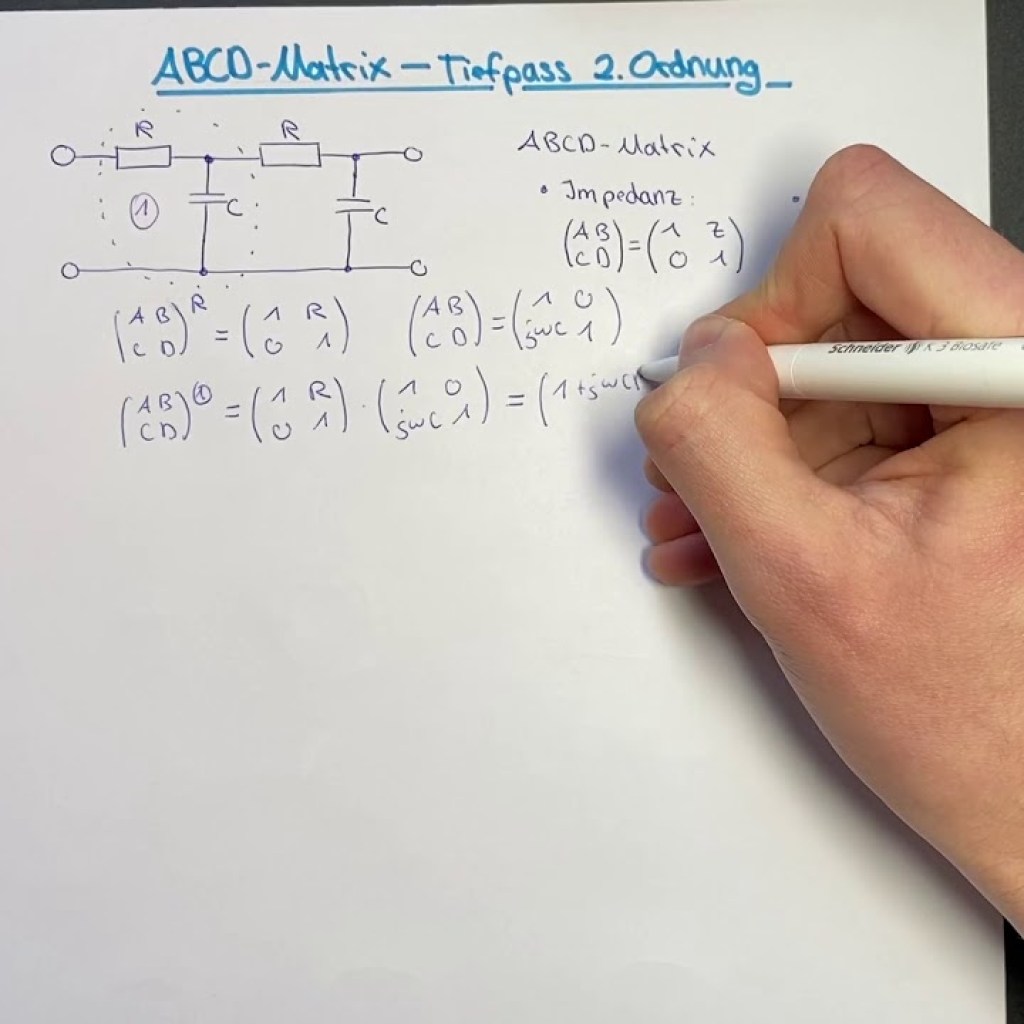 ABCD-Matrix - Tiefpass 2. Ordnung
R R
1 C C
ABCD-Matrix
• Impedanz:
(A B; C D) = (1 Z; 0 1)
(A B; C D)^R = (1 R; 0 1) (A B; C D) = (1 0; jωC 1)
(A B; C D)^① = (1 R; 0 1) · (1 0; jωC 1) = (1+jωC
Schneider K 3 Biosafe